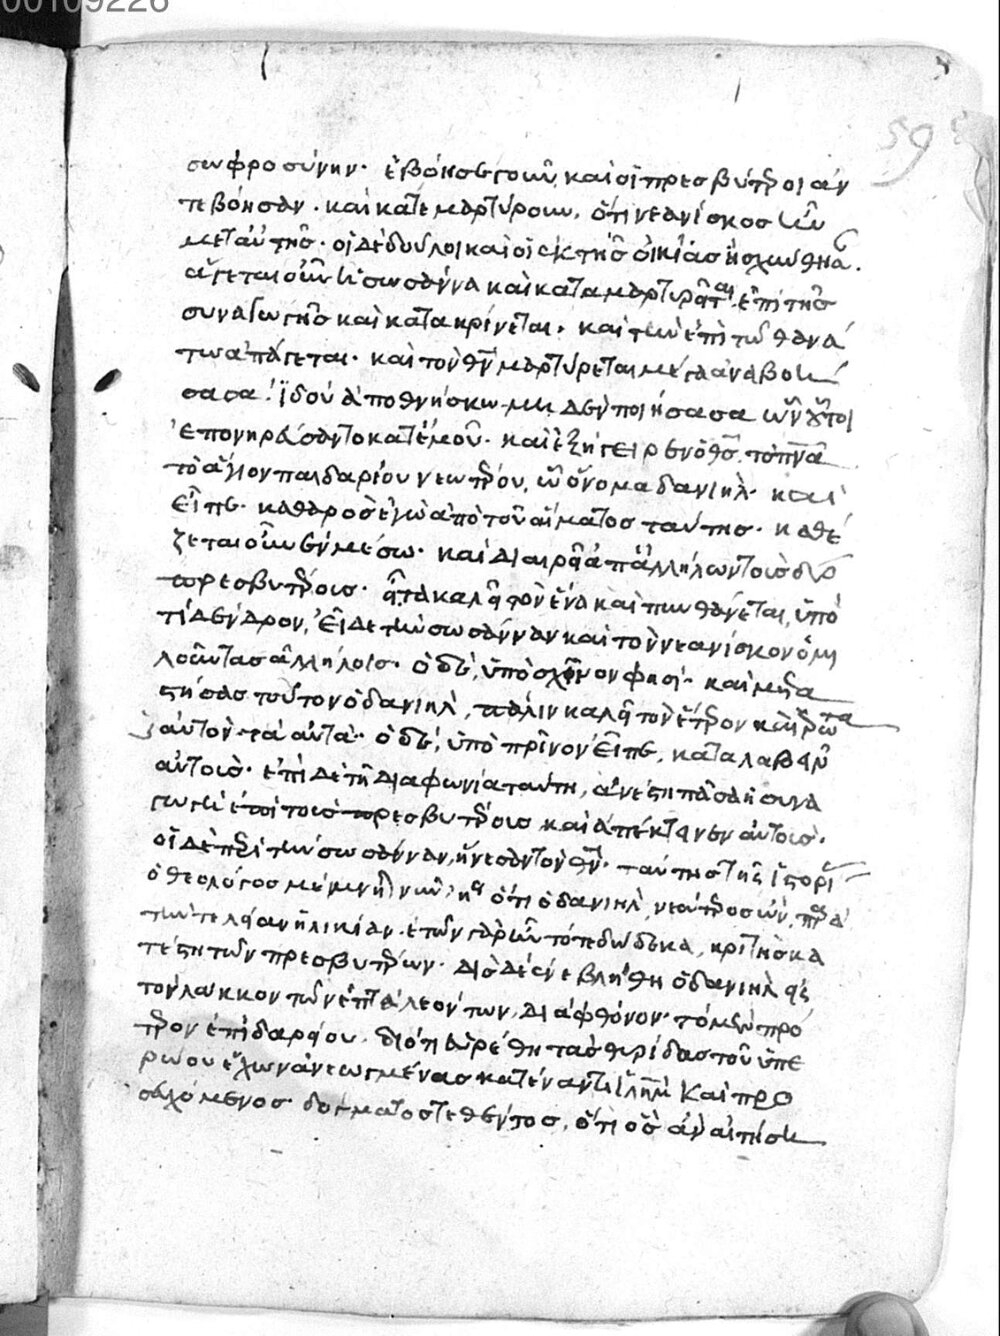 00109226
59
σωφροσύνην· ἐβόησε γοῦν, καὶ οἱ πρεσβύτεροι ἀν
τεβόησαν· καὶ κατεμαρτύρουν, ὅτι νεανίσκος ἦν
μετ' αὐτῆς· οἱ δὲ δοῦλοι καὶ οἱ ἐκ τῆς οἰκίας ἠσχύνθησαν.
ἄγεται οὖν ἡ σωσάννα καὶ καταμαρτυρεῖται ἐπὶ τῆς
συναγωγῆς καὶ κατακρίνεται· καὶ τὴν ἐπὶ τῷ θανά
τω ἀπάγεται· καὶ τὸν θν μαρτύρεται μέγα ἀναβοή
σασα! ἰδοὺ ἀποθνήσκω μηδὲν ποιήσασα ὧν οὗτοι
ἐπονηρεύσαντο κατ' ἐμοῦ· καὶ ἐξήγειρεν ὁ θς τὸ πνα
τὸ ἅγιον παιδαρίου νεωτέρου, ὧ ὄνομα δανιήλ· καὶ
εἶπε· καθαρὸς ἐγὼ ἀπὸ τοῦ αἵματος ταύτης· καθέ
ζεται οὖν ἐν μέσω· καὶ διαιρεῖ ἀπ' ἀλλήλων τοὺς δύο
πρεσβυτέρους· εἶτα καλεῖ τὸν ἕνα καὶ πυνθάνεται, ὑπὸ
τί δένδρον, εἶδε τὴν σωσάνναν καὶ τὸν νεανίσκον ὁμι
λοῦντας ἀλλήλοις· ὁ δὲ, ὑπὸ σχῖνον φησί· καὶ μετα
στήσας τοῦτον ὁ δανιήλ, πάλιν καλεῖ τὸν ἕτερον καὶ ἐρωτα
αὐτὸν τὰ αὐτὰ· ὁ δὲ, ὑπὸ πρῖνον εἶπε, καταλαβεῖν
αὐτούς· ἐπὶ δὲ τῆ διαφωνία ταύτη, ἀνέστη πᾶσα ἡ συνα
γωγὴ ἐπὶ τοὺς πρεσβυτέρους καὶ ἀπέκτεινεν αὐτούς·
οἱ δὲ περὶ τὴν σωσάνναν, ἤνεσαν τὸν θν· ταύτης τῆς ἱστορί
ὁ θεολόγος μέμνηται νῦν· ὅτι ὁ δανιήλ, νεώτερος ὢν, παρὰ
τὴν τελείαν ἡλικίαν· ἐτῶν γὰρ ἦν τότε δώδεκα, κριτὴς κα
τέστη τῶν πρεσβυτέρων· δὶς δὲ ἐνεβλήθη ὁ δανιήλ εἰς
τὸν λάκκον τῶν ἑπτὰ λεόντων, διὰ φθόνον· τὸ μὲν πρό
τερον ἐπὶ δαρείου· διότι εὑρέθη τὰς θυρίδας τοῦ ὑπε
ρώου ἔχων ἀνεωγμένας κατέναντι ἱλημ καὶ προ
σευχόμενος· δόγματος τεθέντος, ὅτι ὃς ἂν αἰτήση